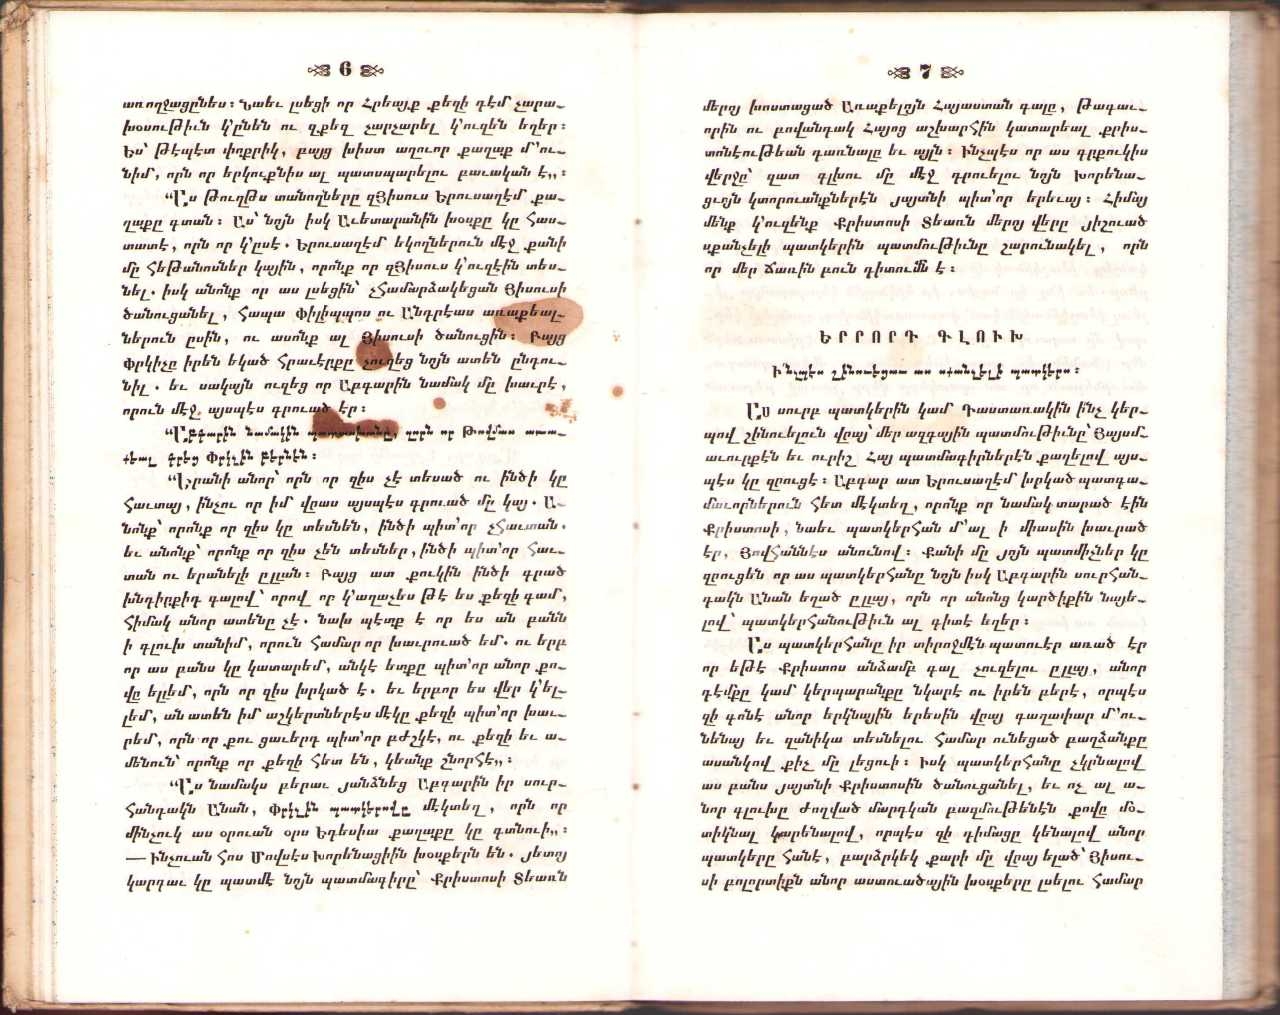 6
առողջացընես։ Նաեւ լսեցի որ Հրեայք քեզի դէմ չարա֊
խօսութիւն կ՚ընեն ու զքեզ չարչարել կ՚ուզեն եղեր։
Ես՝ թէպէտ փոքրիկ, բայց խիստ աղուոր քաղաք մ՚ու֊
նիմ, որն որ երկուքնիս ալ պատսպարելու բաւական է„։
“Այս Թուղթս տանողները զՅիսուս Երուսաղէմ քա֊
ղաքը գտան։ Աս՝ նոյն իսկ Աւետարանին խօսքը կը հաս֊
տատէ, որն որ կ՚ըսէ. Երուսաղէմ եկողներուն մէջ քանի
մը հեթանոսներ կային, որոնք որ զՅիսուս կ՚ուզէին տես֊
նել. իսկ անոնք որ աս լսեցին՝ չհամարձակեցան Յիսուսի
ծանուցանել, հապա Փիլիպպոս ու Անդրէաս առաքեալ֊
ներուն ըսին, ու ասոնք ալ Յիսուսի ծանուցին։ Բայց
Փրկիչը իրեն եկած հրաւէրքը չուզեց նոյն ատեն ընդու֊
նիլ. եւ սակայն ուզեց որ Աբգարին նամակ մը խաւրէ,
որուն մէջ այսպէս գրուած էր։
“Աբգարին նամակին պատասխանը, զորն որ Թովմաս առա֊
քեալ գրեց Փրկչին բերնէն։
“Երանի անոր՝ որն որ զիս չէ տեսած ու ինծի կը
հաւտայ, ինչու որ իմ վրաս այսպէս գրուած մը կայ. Ա֊
նոնք՝ որոնք որ զիս կը տեսնեն, ինծի պիտ՚որ չհաւտան.
եւ անոնք՝ որոնք որ զիս չեն տեսներ, ինծի պիտ՚որ հաւ֊
տան ու երանելի ըլլան։ Բայց ատ քուկին ինծի գրած
խնդիրքիդ գալով՝ որով որ կ՚աղաչես թէ ես քեզի գամ,
հիմակ անոր ատենը չէ. նախ պէտք է որ ես ան բանն
ի գլուխ տանիմ, որուն համար որ խաւրուած եմ. ու երբ
որ աս բանս կը կատարեմ, անկէ ետքը պիտ՚որ անոր քո֊
վը ելլեմ, որն որ զիս խրկած է. եւ երբոր ես վեր կ՚ել֊
լեմ, ան ատեն իմ աշկերտներէս մէկը քեզի պիտ՚որ խաւ֊
րեմ, որն որ քու ցաւերդ պիտ՚որ բժշկէ, ու քեզի եւ ա֊
մենուն՝ որոնք որ քեզի հետ են, կեանք շնորհէ„։
“Այս նամակս բերաւ յանձնեց Աբգարին իր սուր֊
հանդակն Անան, Փրկչին պատկերովը մէկտեղ, որն որ
մինչուկ աս օրուան օրս Եդեսիա քաղաքը կը գտնուի„։
— Ինչուան հոս Մովսէս Խորենացիին խօսքերն են. յետոյ
կարդաւ կը պատմէ նոյն պատմագիրը՝ Քրիստոսի Տեառն
7
մերոյ խոստացած Առաքելոյն Հայաստան գալը, Թագաւ֊
որին ու բովանդակ Հայոց աշխարհին կատարեալ քրիս֊
տոնէութեան դառնալը եւ այլն։ Ինչպէս որ աս գրքուկիս
վերջը՝ զատ գլխու մը մէջ գրուելու նոյն Խորենա֊
ցւոյն կտորուանքներէն յայտնի պիտ՚որ երեւայ։ Հիմայ
մենք կ՚ուզենք Քրիստոսի Տեառն մերոյ վերը յիշուած
սքանչելի պատկերին պատմութիւնը շարունակել, որն
որ մեր ճառին բուն դիտումն է։
ԵՐՐՈՐԴ ԳԼՈՒԽ
Ի՞նչպէս շինուեցաւ աս սքանչելի պատկերս։
Այս սուրբ պատկերին կամ Դաստառակին ինչ կեր֊
պով շինուելուն վրայ՝ մեր ազգային պատմութիւնը՝ Յայսմ֊
աւուրքէն եւ ուրիշ Հայ պատմագիրներէն քաղելով այս֊
պէս կը զրուցէ։ Աբգար ատ Երուսաղէմ խրկած պատգա֊
մաւորներուն հետ մէկտեղ, որոնք որ նամակ տարած էին
Քրիստոսի, նաեւ պատկերհան մ՚ալ ի միասին խաւրած
էր, Յովհաննէս անունով։ Քանի մը յոյն պատմիչներ կը
զրուցեն որ աս պատկերհանը նոյն իսկ Աբգարին սուրհան֊
դակն Անան եղած ըլլայ, որն որ անոնց կարծիքին նայե֊
լով՝ պատկերհանութիւն ալ գիտէ եղեր։
Այս պատկերհանը իր տիրոջմէն պատուէր առած էր
որ եթէ Քրիստոս անձամբ գալ չուզելու ըլլայ, անոր
դէմքը կամ կերպարանքը նկարէ ու իրեն բերէ, որպէս
զի գոնէ անոր երկնային երեսին վրայ գաղափար մ՚ու֊
նենայ եւ զանիկա տեսնելու համար ունեցած բաղձանքը
ասանկով քիչ մը լեցուի։ Իսկ պատկերհանը չկրնալով
աս բանս յայտնի Քրիստոսին ծանուցանել, եւ ոչ ալ ա֊
նոր գլուխը ժողված մարդկան բազմութենէն քովը մօ֊
տիկնալ կարենալով, որպէս զի դիմացը կենալով անոր
պատկերը հանէ, բարձրկեկ քարի մը վրայ ելած՝ Յիսու֊
սի բոլորտիքն անոր աստուածային խօսքերը լսելու համար